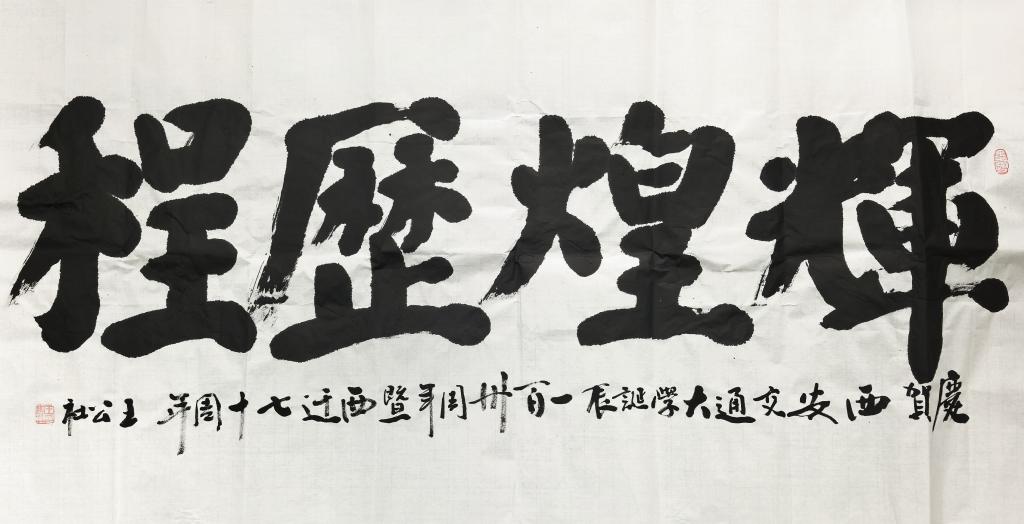 輝煌歷程
慶賀西安交通大學誕辰一百卅周年暨西迁七十周年 王公社